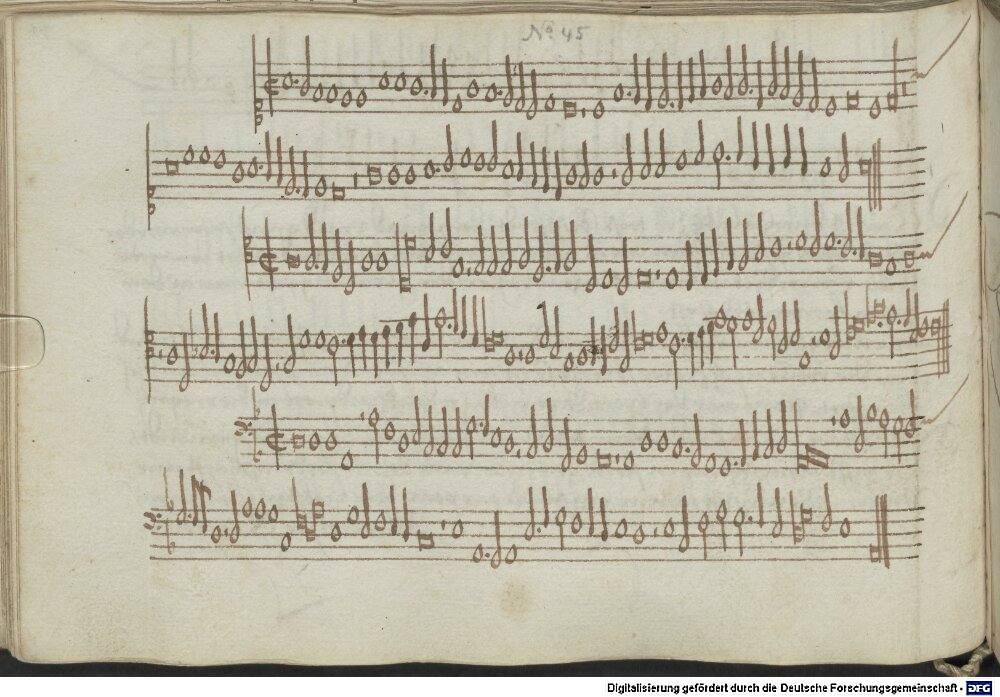 No 45
Digitalisierung gefördert durch die Deutsche Forschungsgemeinschaft - DFG